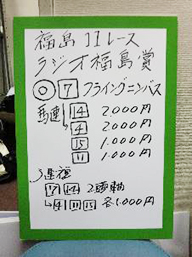 福島11レース
ラジオ福島賞
◎ 7 フライングニンバス
馬連 14 2.000円
4 2.000円
15 1.000円
11 1.000円
3連複
7 14 2頭軸
4 11 15 各1.000円